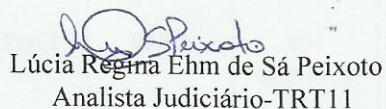 Lúcia Regina Ehm de Sá Peixoto
Analista Judiciário-TRT11